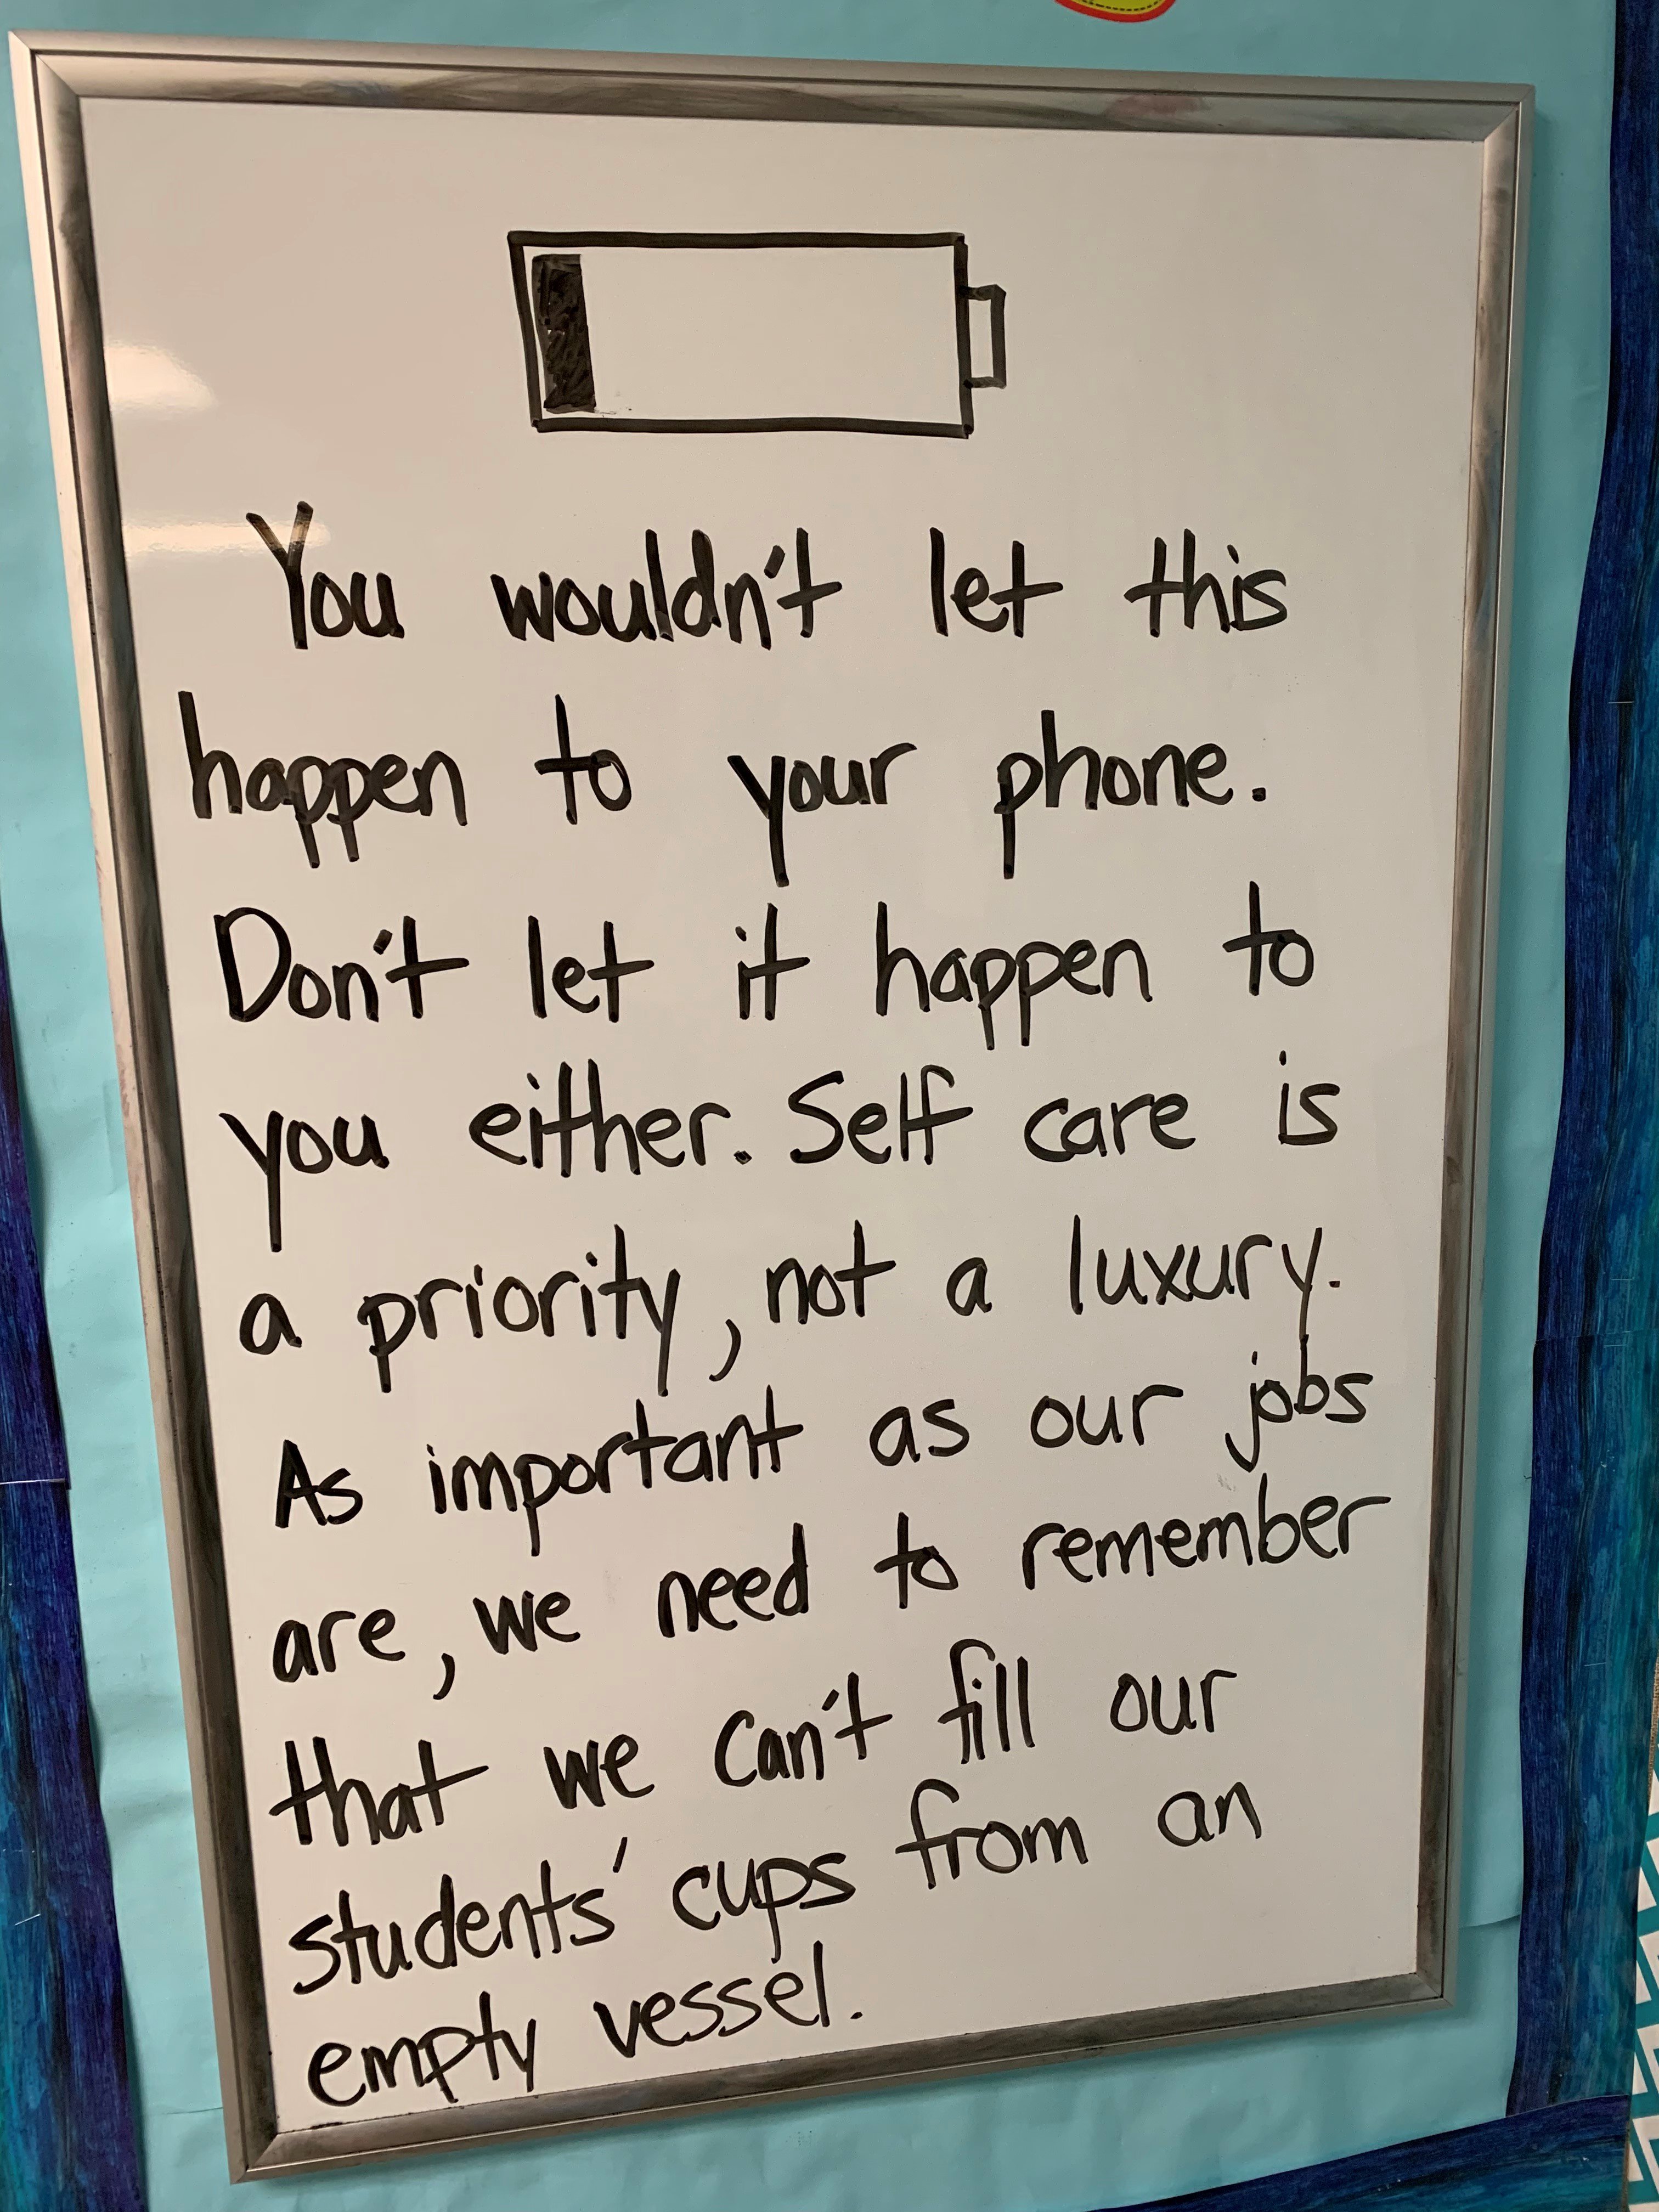 You wouldn't let this
happen to your phone.
Don't let it happen to
you either. Self care is
a priority, not a luxury.
As important as our jobs
are, we need to remember
that we can't fill our
students' cups from an
empty vessel.